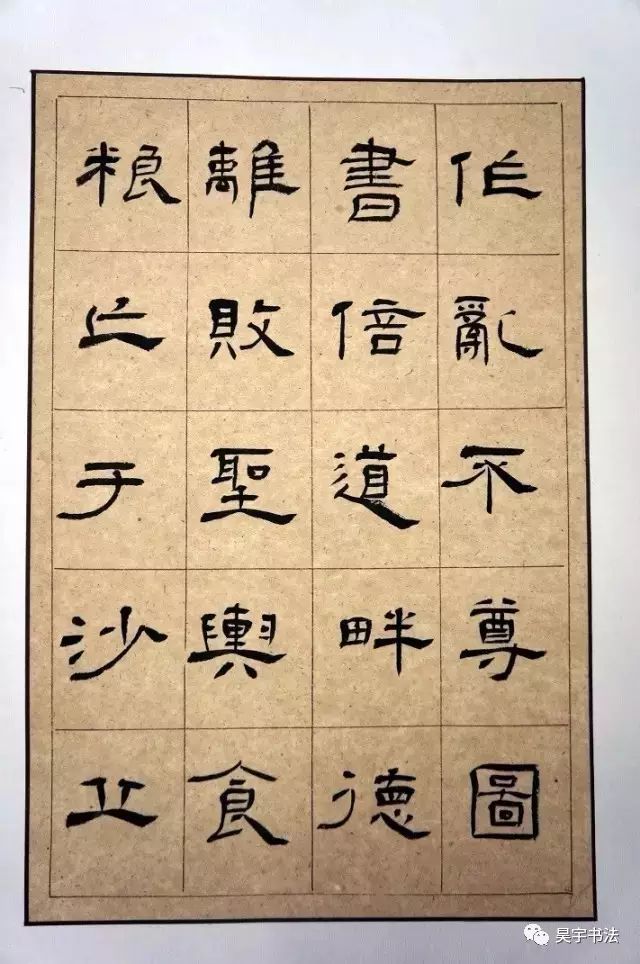 作亂不尊圖
書倍道畔德
離敗聖輿食
粮亡于沙丘
昊宇书法